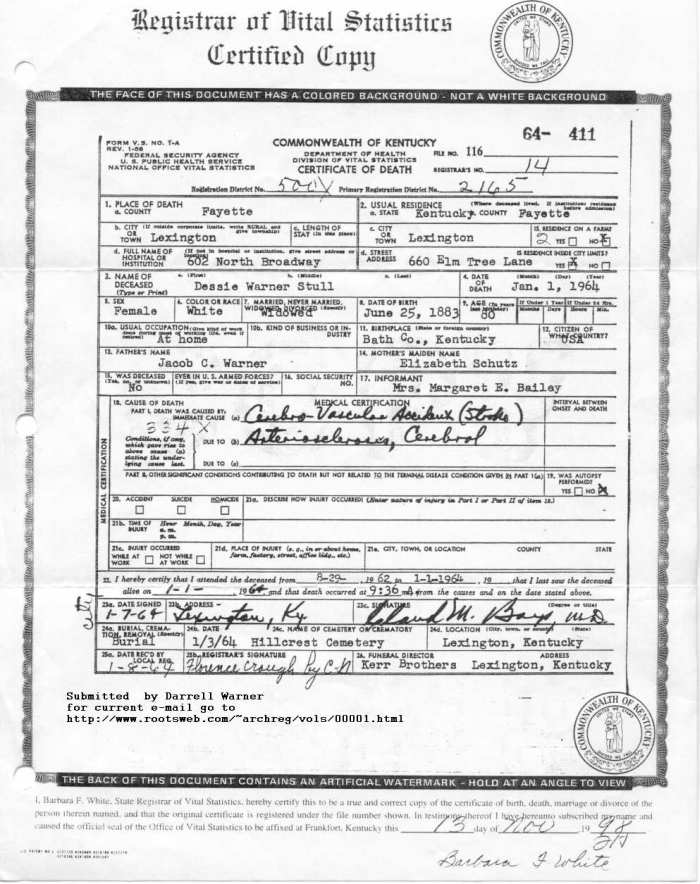 Registrar of Vital Statistics
Certified Copy
COMMONWEALTH OF KENTUCKY
THE FACE OF THIS DOCUMENT HAS A COLORED BACKGROUND - NOT A WHITE BACKGROUND
64- 411
FORM V.S. NO. 1-A
REV. 1-56
FEDERAL SECURITY AGENCY
U. S. PUBLIC HEALTH SERVICE
NATIONAL OFFICE VITAL STATISTICS
COMMONWEALTH OF KENTUCKY
DEPARTMENT OF HEALTH
DIVISION OF VITAL STATISTICS
CERTIFICATE OF DEATH
FILE NO. 116
REGISTRAR'S NO. 14
Registration District No. Primary Registration District No. 2165
1. PLACE OF DEATH
a. COUNTY Fayette
2. USUAL RESIDENCE (Where deceased lived. If institution: residence before admission)
a. STATE Kentucky b. COUNTY Fayette
b. CITY (If outside corporate limits, write RURAL and give township)
OR TOWN Lexington
c. LENGTH OF STAY (in this place)
c. CITY OR TOWN Lexington
IS RESIDENCE ON A FARM?
2 YES NO X
d. FULL NAME OF HOSPITAL OR INSTITUTION (If not in hospital or institution, give street address or location)
602 North Broadway
d. STREET ADDRESS 660 Elm Tree Lane
IS RESIDENCE INSIDE CITY LIMITS?
YES X NO
3. NAME OF DECEASED (Type or Print)
a. (First) b. (Middle) c. (Last)
Dessie Warner Stull
4. DATE OF DEATH (Month) (Day) (Year)
Jan. 1, 1964
5. SEX Female
6. COLOR OR RACE White
7. MARRIED, NEVER MARRIED, WIDOWED, DIVORCED (Specify) Widowed
8. DATE OF BIRTH June 25, 1883
9. AGE (In years last birthday) 80
If Under 1 Year If Under 24 Hrs.
Months Days Hours Min.
10a. USUAL OCCUPATION (Give kind of work done during most of working life, even if retired)
At home
10b. KIND OF BUSINESS OR INDUSTRY
11. BIRTHPLACE (State or foreign country)
Bath Co., Kentucky
12. CITIZEN OF WHAT COUNTRY?
USA
13. FATHER'S NAME
Jacob C. Warner
14. MOTHER'S MAIDEN NAME
Elizabeth Schutz
15. WAS DECEASED EVER IN U.S. ARMED FORCES?
(Yes, no, or unknown) (If yes, give war or dates of service)
No
16. SOCIAL SECURITY NO.
17. INFORMANT
Mrs. Margaret E. Bailey
MEDICAL CERTIFICATION
18. CAUSE OF DEATH
MEDICAL CERTIFICATION
INTERVAL BETWEEN ONSET AND DEATH
PART I. DEATH WAS CAUSED BY:
IMMEDIATE CAUSE (a) Cerebro-Vascular Accident (Stroke)
334 X
Conditions, if any, which gave rise to above cause (a) stating the underlying cause last.
DUE TO (b) Arteriosclerosis, Cerebral
DUE TO (c)
PART II. OTHER SIGNIFICANT CONDITIONS CONTRIBUTING TO DEATH BUT NOT RELATED TO THE TERMINAL DISEASE CONDITION GIVEN IN PART I(a)
19. WAS AUTOPSY PERFORMED?
YES NO X
20. ACCIDENT SUICIDE HOMICIDE
21a. DESCRIBE HOW INJURY OCCURRED? (Enter nature of injury in Part I or Part II of item 18.)
21b. TIME OF INJURY Hour Month, Day, Year
a. m.
p. m.
21c. INJURY OCCURRED
WHILE AT WORK NOT WHILE AT WORK
21d. PLACE OF INJURY (e. g., in or about home, farm, factory, street, office bldg., etc.)
21e. CITY, TOWN, OR LOCATION COUNTY STATE
22. I hereby certify that I attended the deceased from 8-29, 1962 to 1-1-1964, 19 that I last saw the deceased
alive on 1-1-, 1964 and that death occurred at 9:30 m., from the causes and on the date stated above.
23a. DATE SIGNED 1-7-64
23b. ADDRESS - Lexington, Ky.
23c. SIGNATURE (Degree or title)
M.D.
24a. BURIAL, CREMATION, REMOVAL (Specify) Burial
24b. DATE 1/3/64
24c. NAME OF CEMETERY OR CREMATORY
Hillcrest Cemetery
24d. LOCATION (City, town, or county) (State)
Lexington, Kentucky
25a. DATE REC'D BY LOCAL REG. 1-8-64
25b. REGISTRAR'S SIGNATURE
Florence Crough by C.N
26. FUNERAL DIRECTOR ADDRESS
Kerr Brothers Lexington, Kentucky
Submitted by Darrell Warner
for current e-mail go to
http://www.rootsweb.com/~archreg/vols/00001.html
COMMONWEALTH OF KENTUCKY
THE BACK OF THIS DOCUMENT CONTAINS AN ARTIFICIAL WATERMARK - HOLD AT AN ANGLE TO VIEW
I, Barbara F. White, State Registrar of Vital Statistics, hereby certify this to be a true and correct copy of the certificate of birth, death, marriage or divorce of the
person therein named, and that the original certificate is registered under the file number shown. In testimony thereof I have hereunto subscribed my name and
caused the official seal of the Office of Vital Statistics to be affixed at Frankfort, Kentucky this 13 day of Nov 1998
Barbara F White